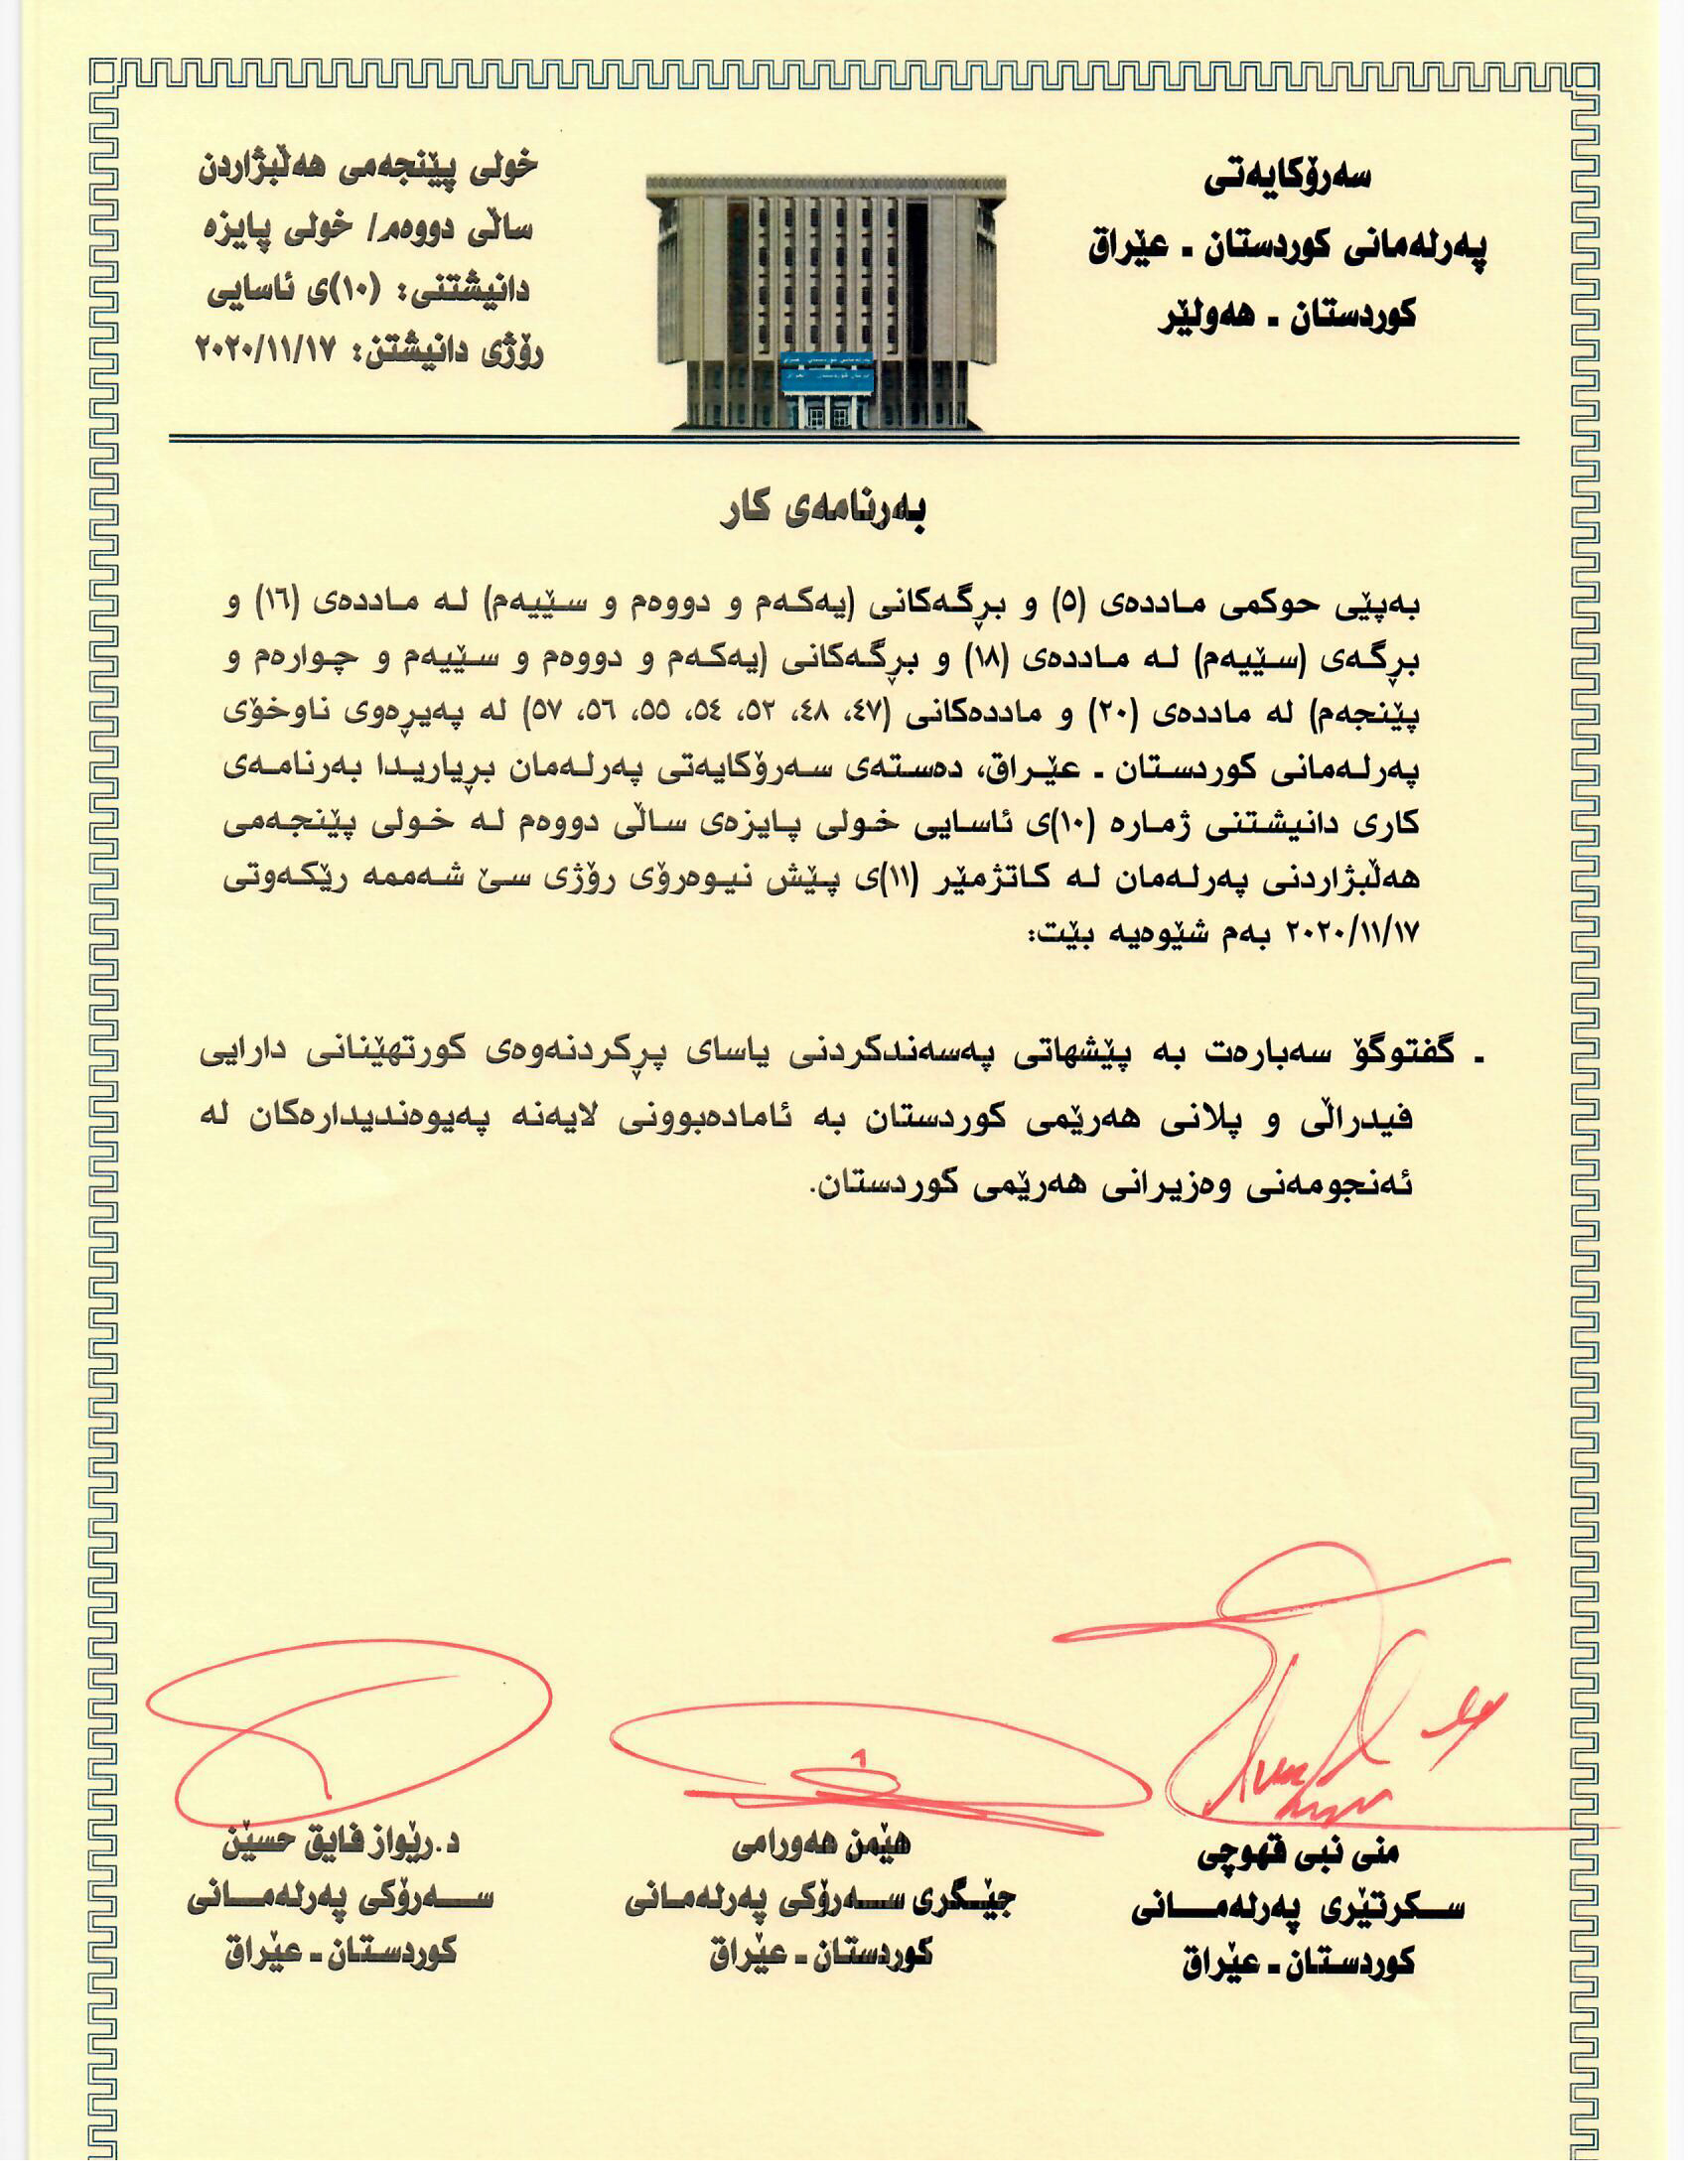 سەرۆکایەتی
پەرلەمانی کوردستان ـ عێراق
کوردستان ـ هەولێر
خولی پێنجەمی هەڵبژاردن
ساڵی دووەم/ خولی پایزە
دانیشتنی: (١٠)ی ئاسایی
رۆژی دانیشتن: ٢٠٢٠/١١/١٧
بەرنامەی کار
بەپێی حوکمی ماددەی (٥) و بڕگەکانی (یەکەم و دووەم و سێیەم) لە ماددەی (١٦) و
بڕگەی (سێیەم) لە ماددەی (١٨) و بڕگەکانی (یەکەم و دووەم و سێیەم و چوارەم و
پێنجەم) لە ماددەی (٢٠) و ماددەکانی (٤٧، ٤٨، ٥٢، ٥٤، ٥٥، ٥٦، ٥٧) لە پەیڕەوی ناوخۆی
پەرلەمانی کوردستان ـ عێراق، دەستەی سەرۆکایەتی پەرلەمان بڕیاریدا بەرنامەی
کاری دانیشتنی ژمارە (١٠)ی ئاسایی خولی پایزەی ساڵی دووەم لە خولی پێنجەمی
هەڵبژاردنی پەرلەمان لە کاتژمێر (١١)ی پێش نیوەرۆی رۆژی سێ شەممە رێکەوتی
٢٠٢٠/١١/١٧ بەم شێوەیە بێت:
ـ گفتوگۆ سەبارەت بە پێشهاتی پەسەندکردنی یاسای پڕکردنەوەی کورتهێنانی دارایی
فیدراڵی و پلانی هەرێمی کوردستان بە ئامادەبوونی لایەنە پەیوەندیدارەکان لە
ئەنجومەنی وەزیرانی هەرێمی کوردستان.
منی نبی قهوچی
سکرتێری پەرلەمانی
کوردستان ـ عێراق
هێمن هەورامی
جێگری سەرۆکی پەرلەمانی
کوردستان ـ عێراق
د.رێواز فایق حسێن
سەرۆکی پەرلەمانی
کوردستان ـ عێراق